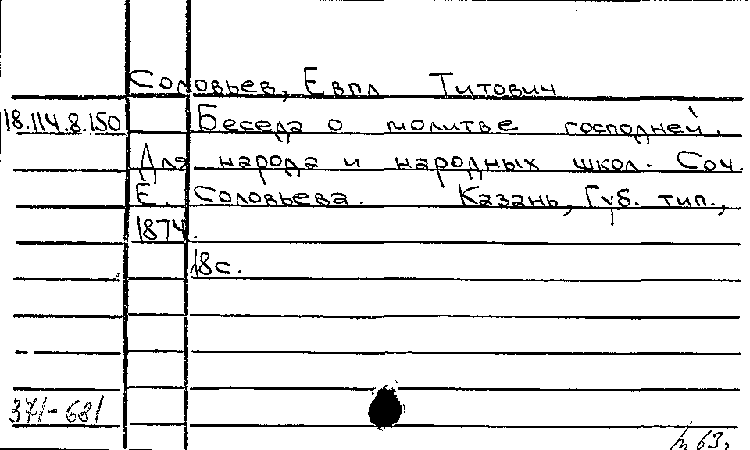 Соловьев, Евпл Титович
18.114.8.150 Беседа о молитве господней.
Для народа и народных школ. Соч.
Е. Соловьева. Казань, Губ. тип.,
1874.
18с.
371-681
63,